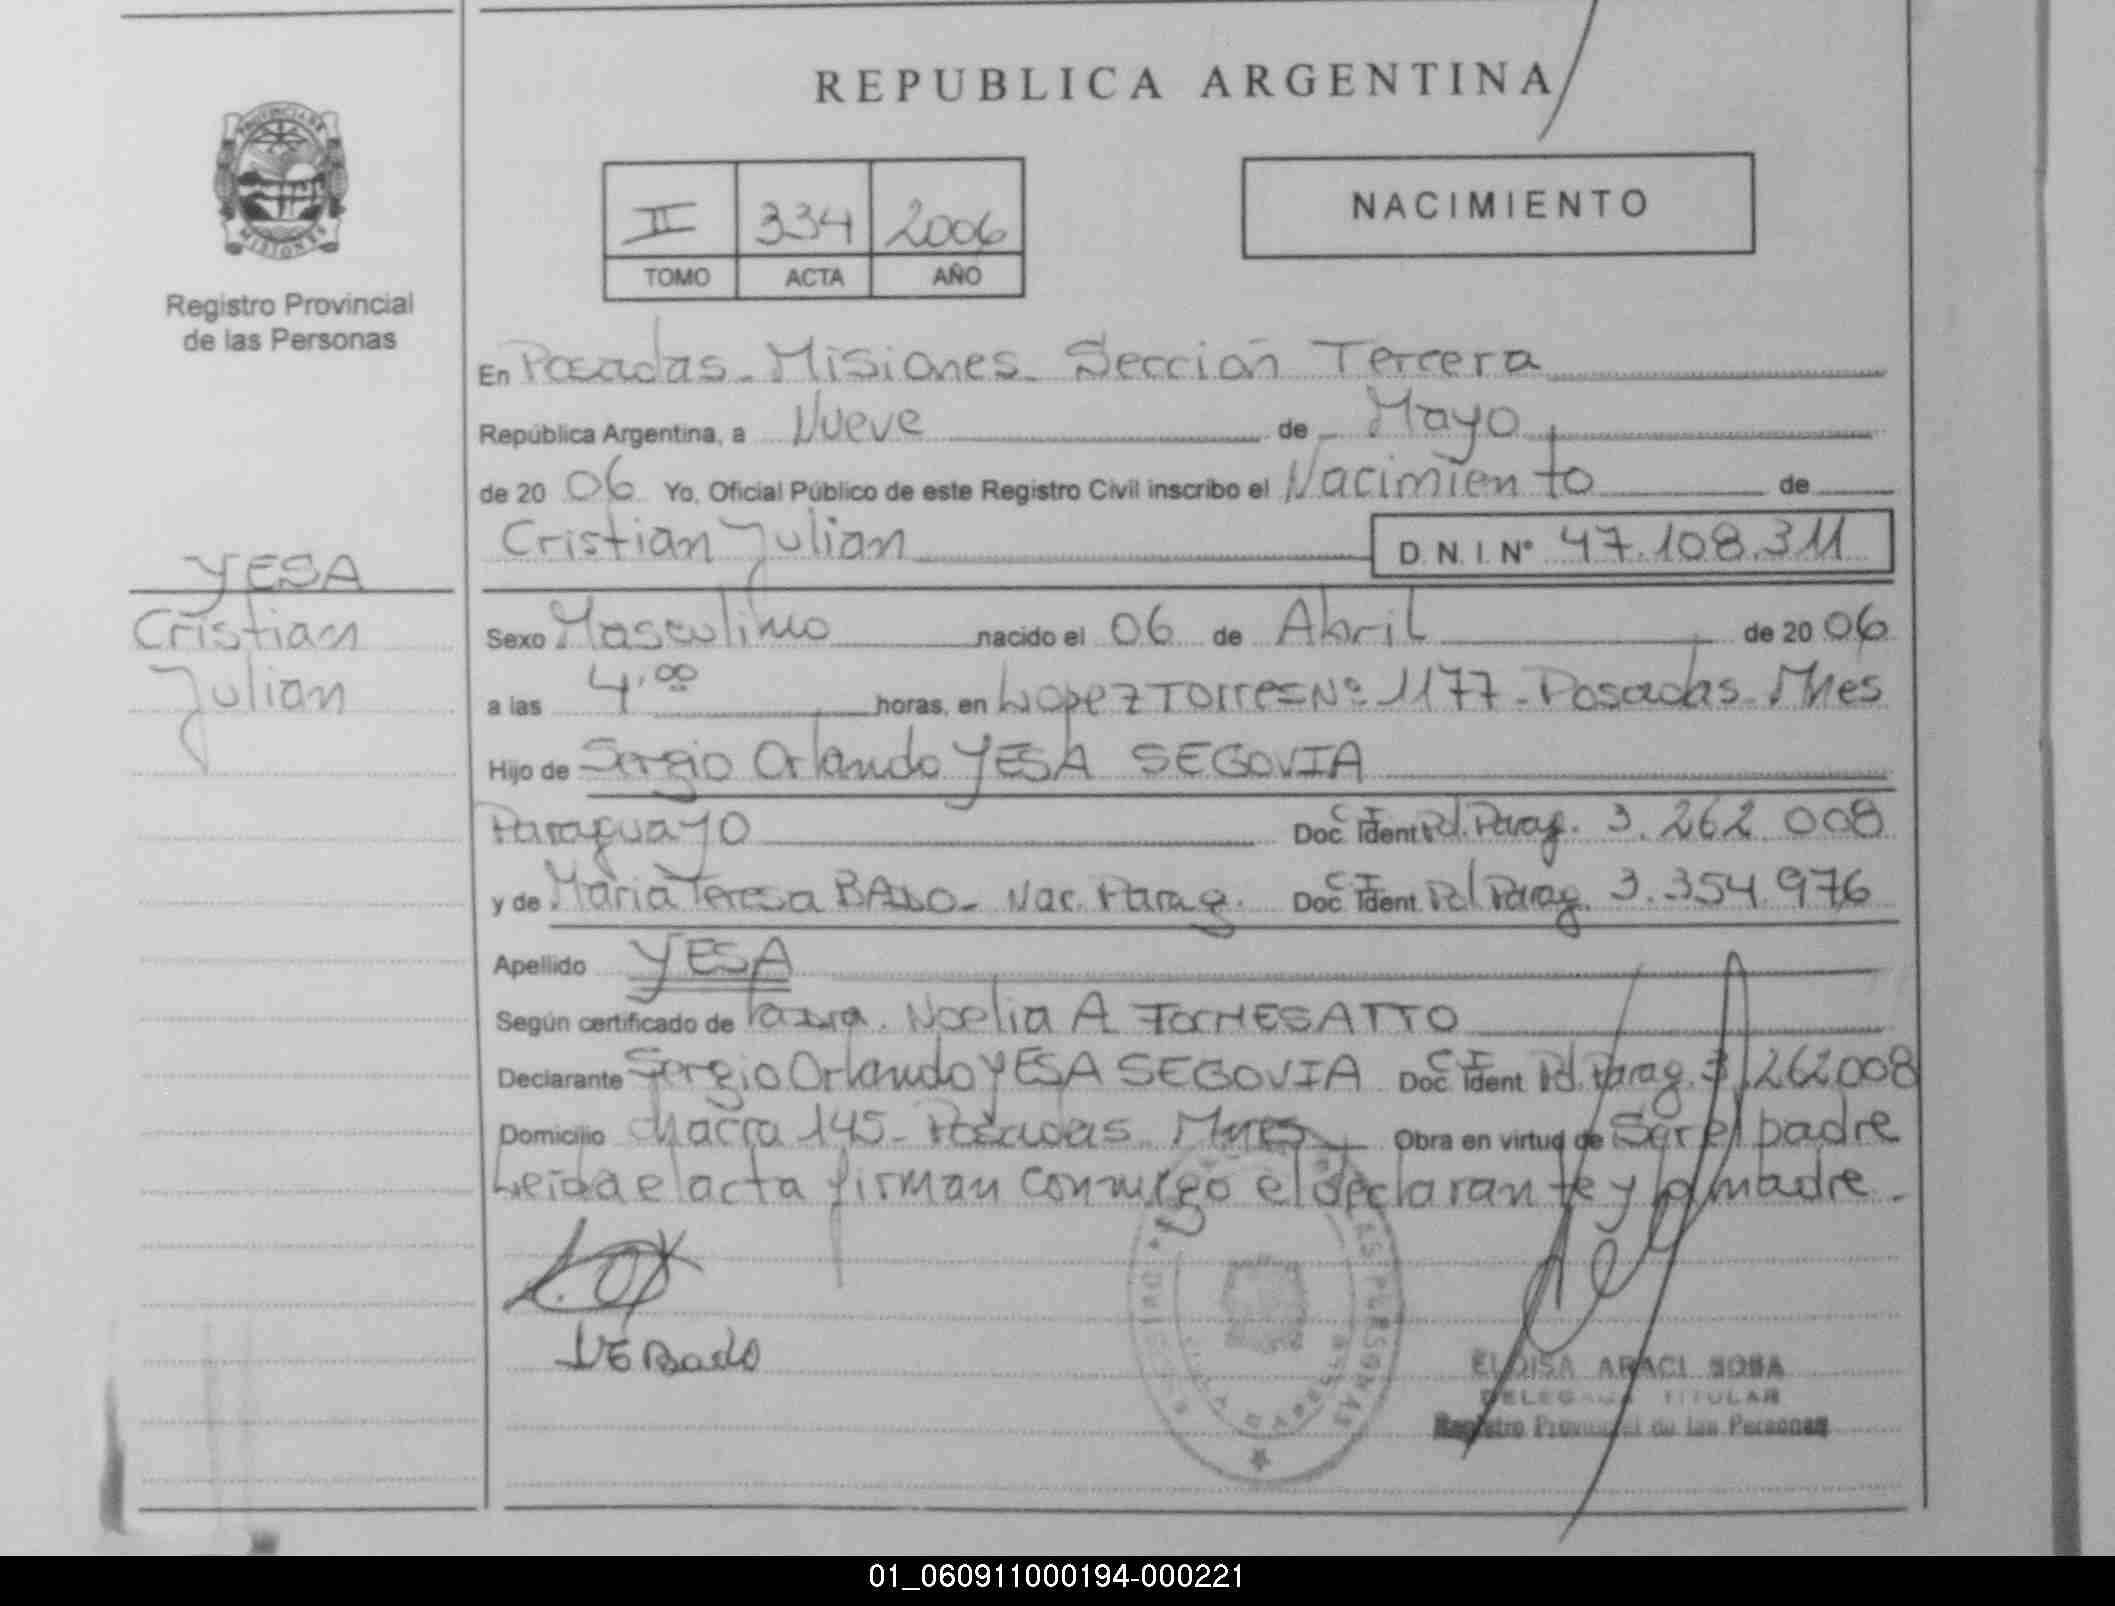 REPUBLICA ARGENTINA
PROVINCIA DE
MISIONES
Registro Provincial
de las Personas
II 334 2006
TOMO ACTA AÑO
NACIMIENTO
En Posadas - Misiones - Sección Tercera
República Argentina, a Nueve de Mayo
de 2006 Yo, Oficial Público de este Registro Civil inscribo el Nacimiento de
Cristian Julian D.N.I. Nº 47.108.311
YESA
Cristian
Julian
Sexo Masculino nacido el 06 de Abril de 2006
a las 4,00 horas, en Lopez Torres Nº 1177 - Posadas - Mnes
Hijo de Sergio Orlando YESA SEGOVIA
Paraguayo Doc. Ident. C I Pol. Parag. 3.262.008
y de Maria Teresa BADO - Nac. Parag. Doc. Ident. C I Pol Parag. 3.354.976
Apellido YESA
Según certificado de Noelia A
Declarante Sergio Orlando YESA SEGOVIA Doc. Ident. C I Pol. Parag. 3.262008
Domicilio chacra 145 - Posadas - Mnes Obra en virtud de Ser el padre
Leida el acta firman conmigo el declarante y la madre.
Bado
AS PERSONAS
ELOISA ARACI SOSA
DELEGADA TITULAR
Registro Provincial de las Personas
01_060911000194-000221